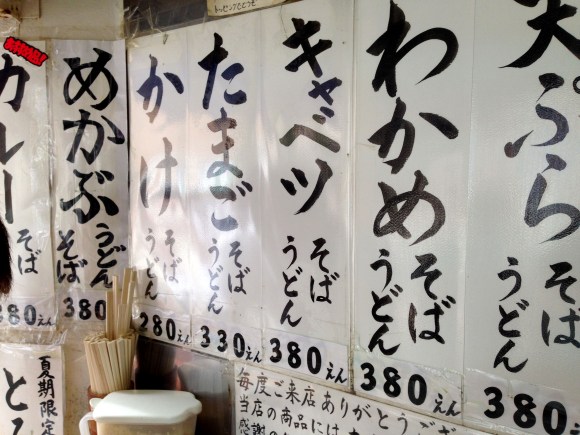 天ぷら
そば
うどん
380
わかめ
そば
うどん
380えん
キャベツ
そば
うどん
380えん
たまご
そば
うどん
330えん
かけ
そば
うどん
280えん
めかぶ
うどん
そば
380
カレー
そば
380えん
毎度ご来店ありがとうござ
当店の商品には
感謝の
夏期限定
と